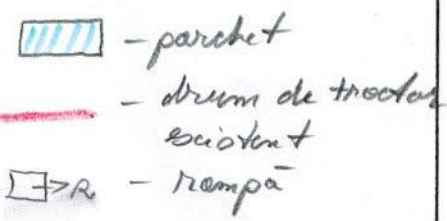 - parchet
- drum de tractor
existent
R. - rampă